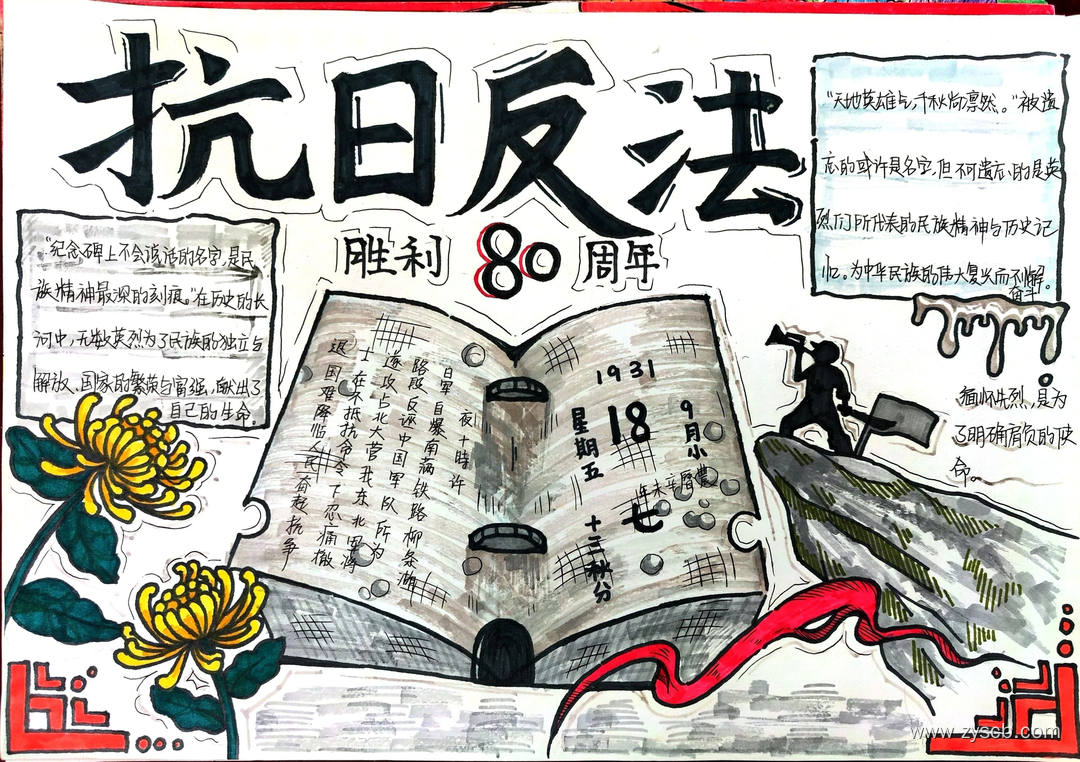 抗日反法
胜利80周年
"纪念碑上不会说话的名字,是民
族精神最深的刻痕。"在历史的长
河中,无数英烈为了民族的独立与
解放、国家的繁荣与富强,献出了
自己的生命。
"天地英雄气,千秋尚凛然。"被遗
忘的或许是名字,但不可遗忘的是英
烈们所代表的民族精神与历史记
忆。为中华民族的伟大复兴而不懈
奋斗。
缅怀先烈,是为
了明确肩负的使
命。
夜十時许
日军自爆南满铁路柳条湖
路段反诬中国軍队所为
遂攻占北大营我东北軍将
士在不抵抗命令下忍痛撤
退国难降临人民奋起抗争
1931
9月小
18
星期五
農曆辛未年
七
十二秋分
www.zyscb.com